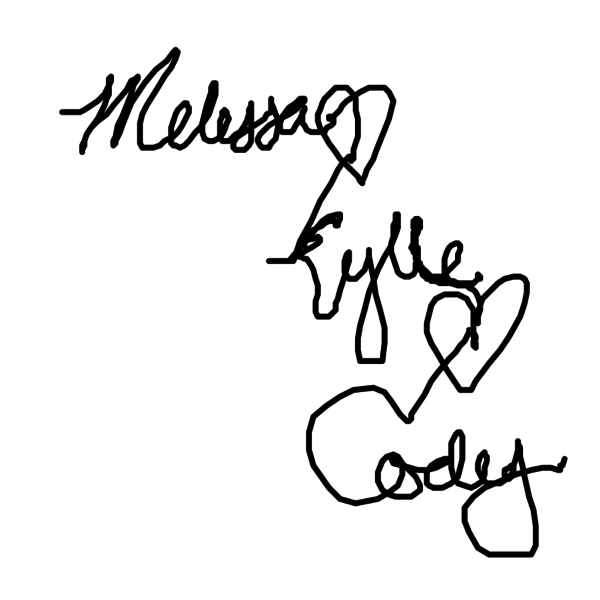 Melessa
Kylle
Codey